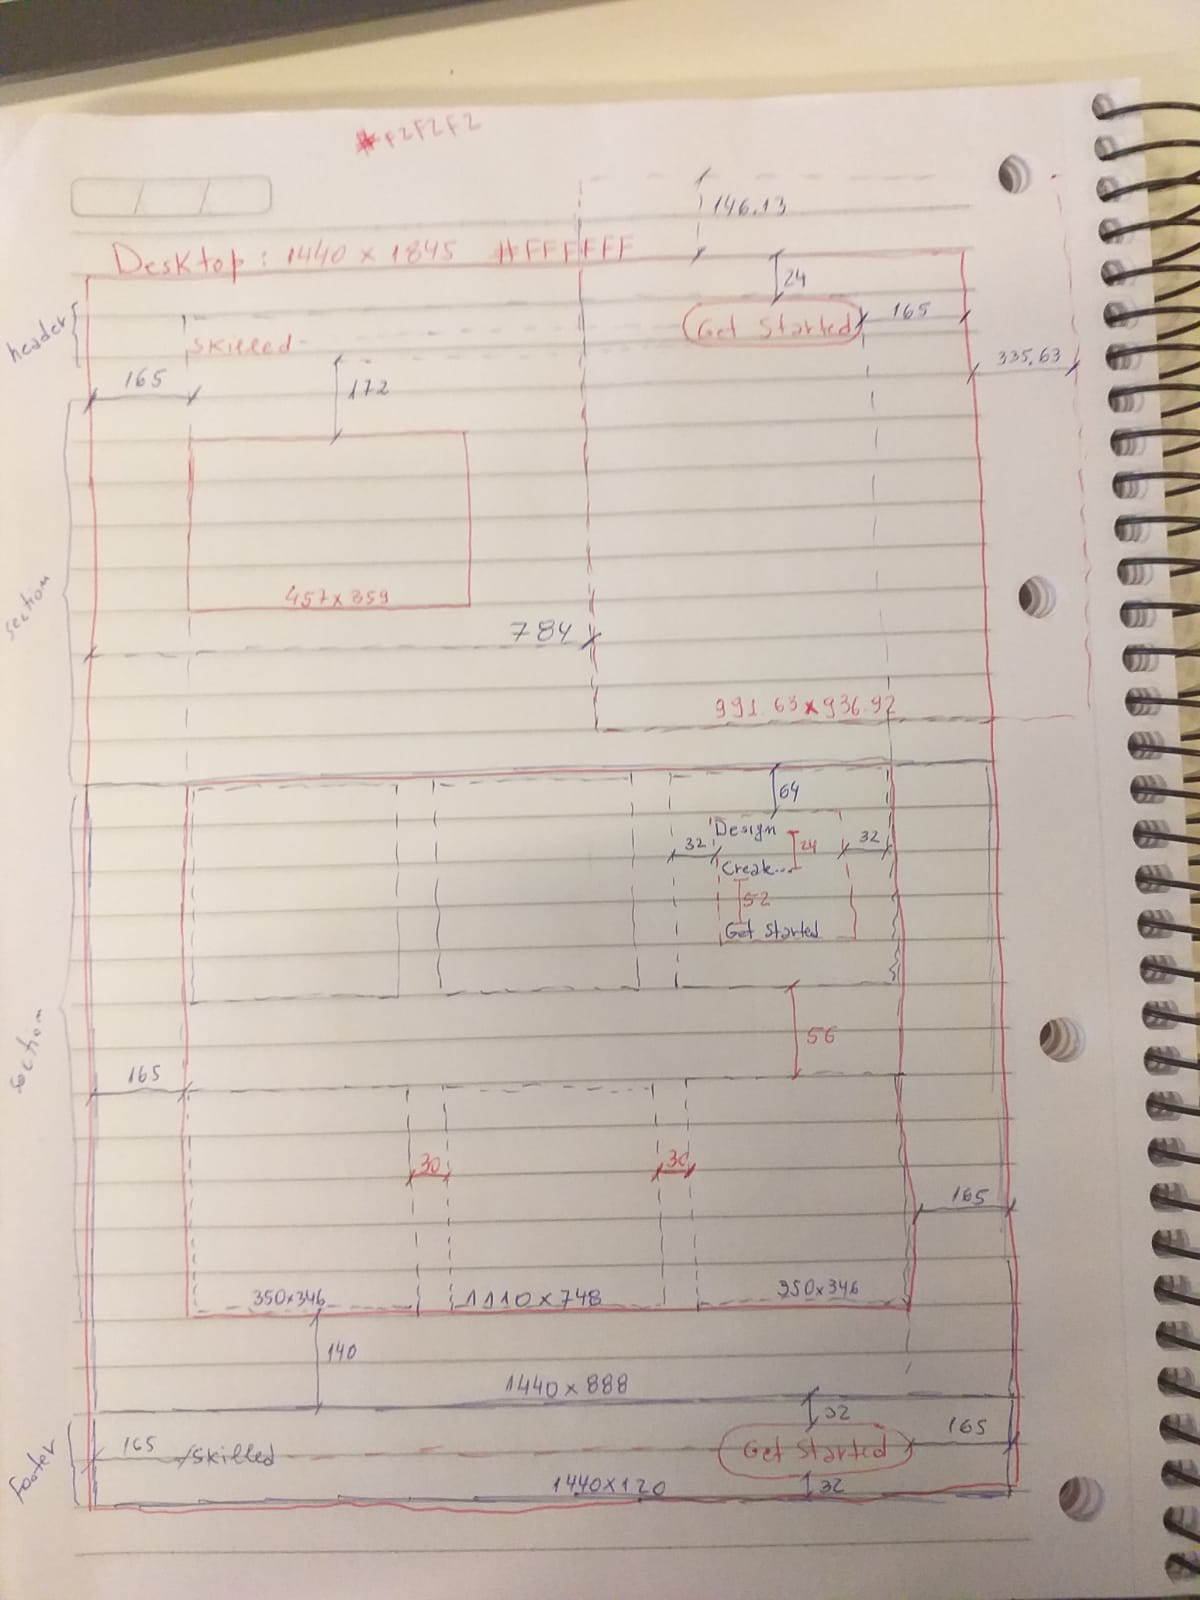 #F2F2F2
146.13
Desktop: 1440 x 1845 #FFFFFF
24
header
Skilled
Get Started
165
165
172
335,63
section
457x359
784
991.63x936.92
64
Design
32
24
32
Creak...
52
Get Started
56
section
165
30
30
165
350x346
1110x748
350x346
140
1440x888
32
footer
165
Skilled
Get Started
165
1440x120
32